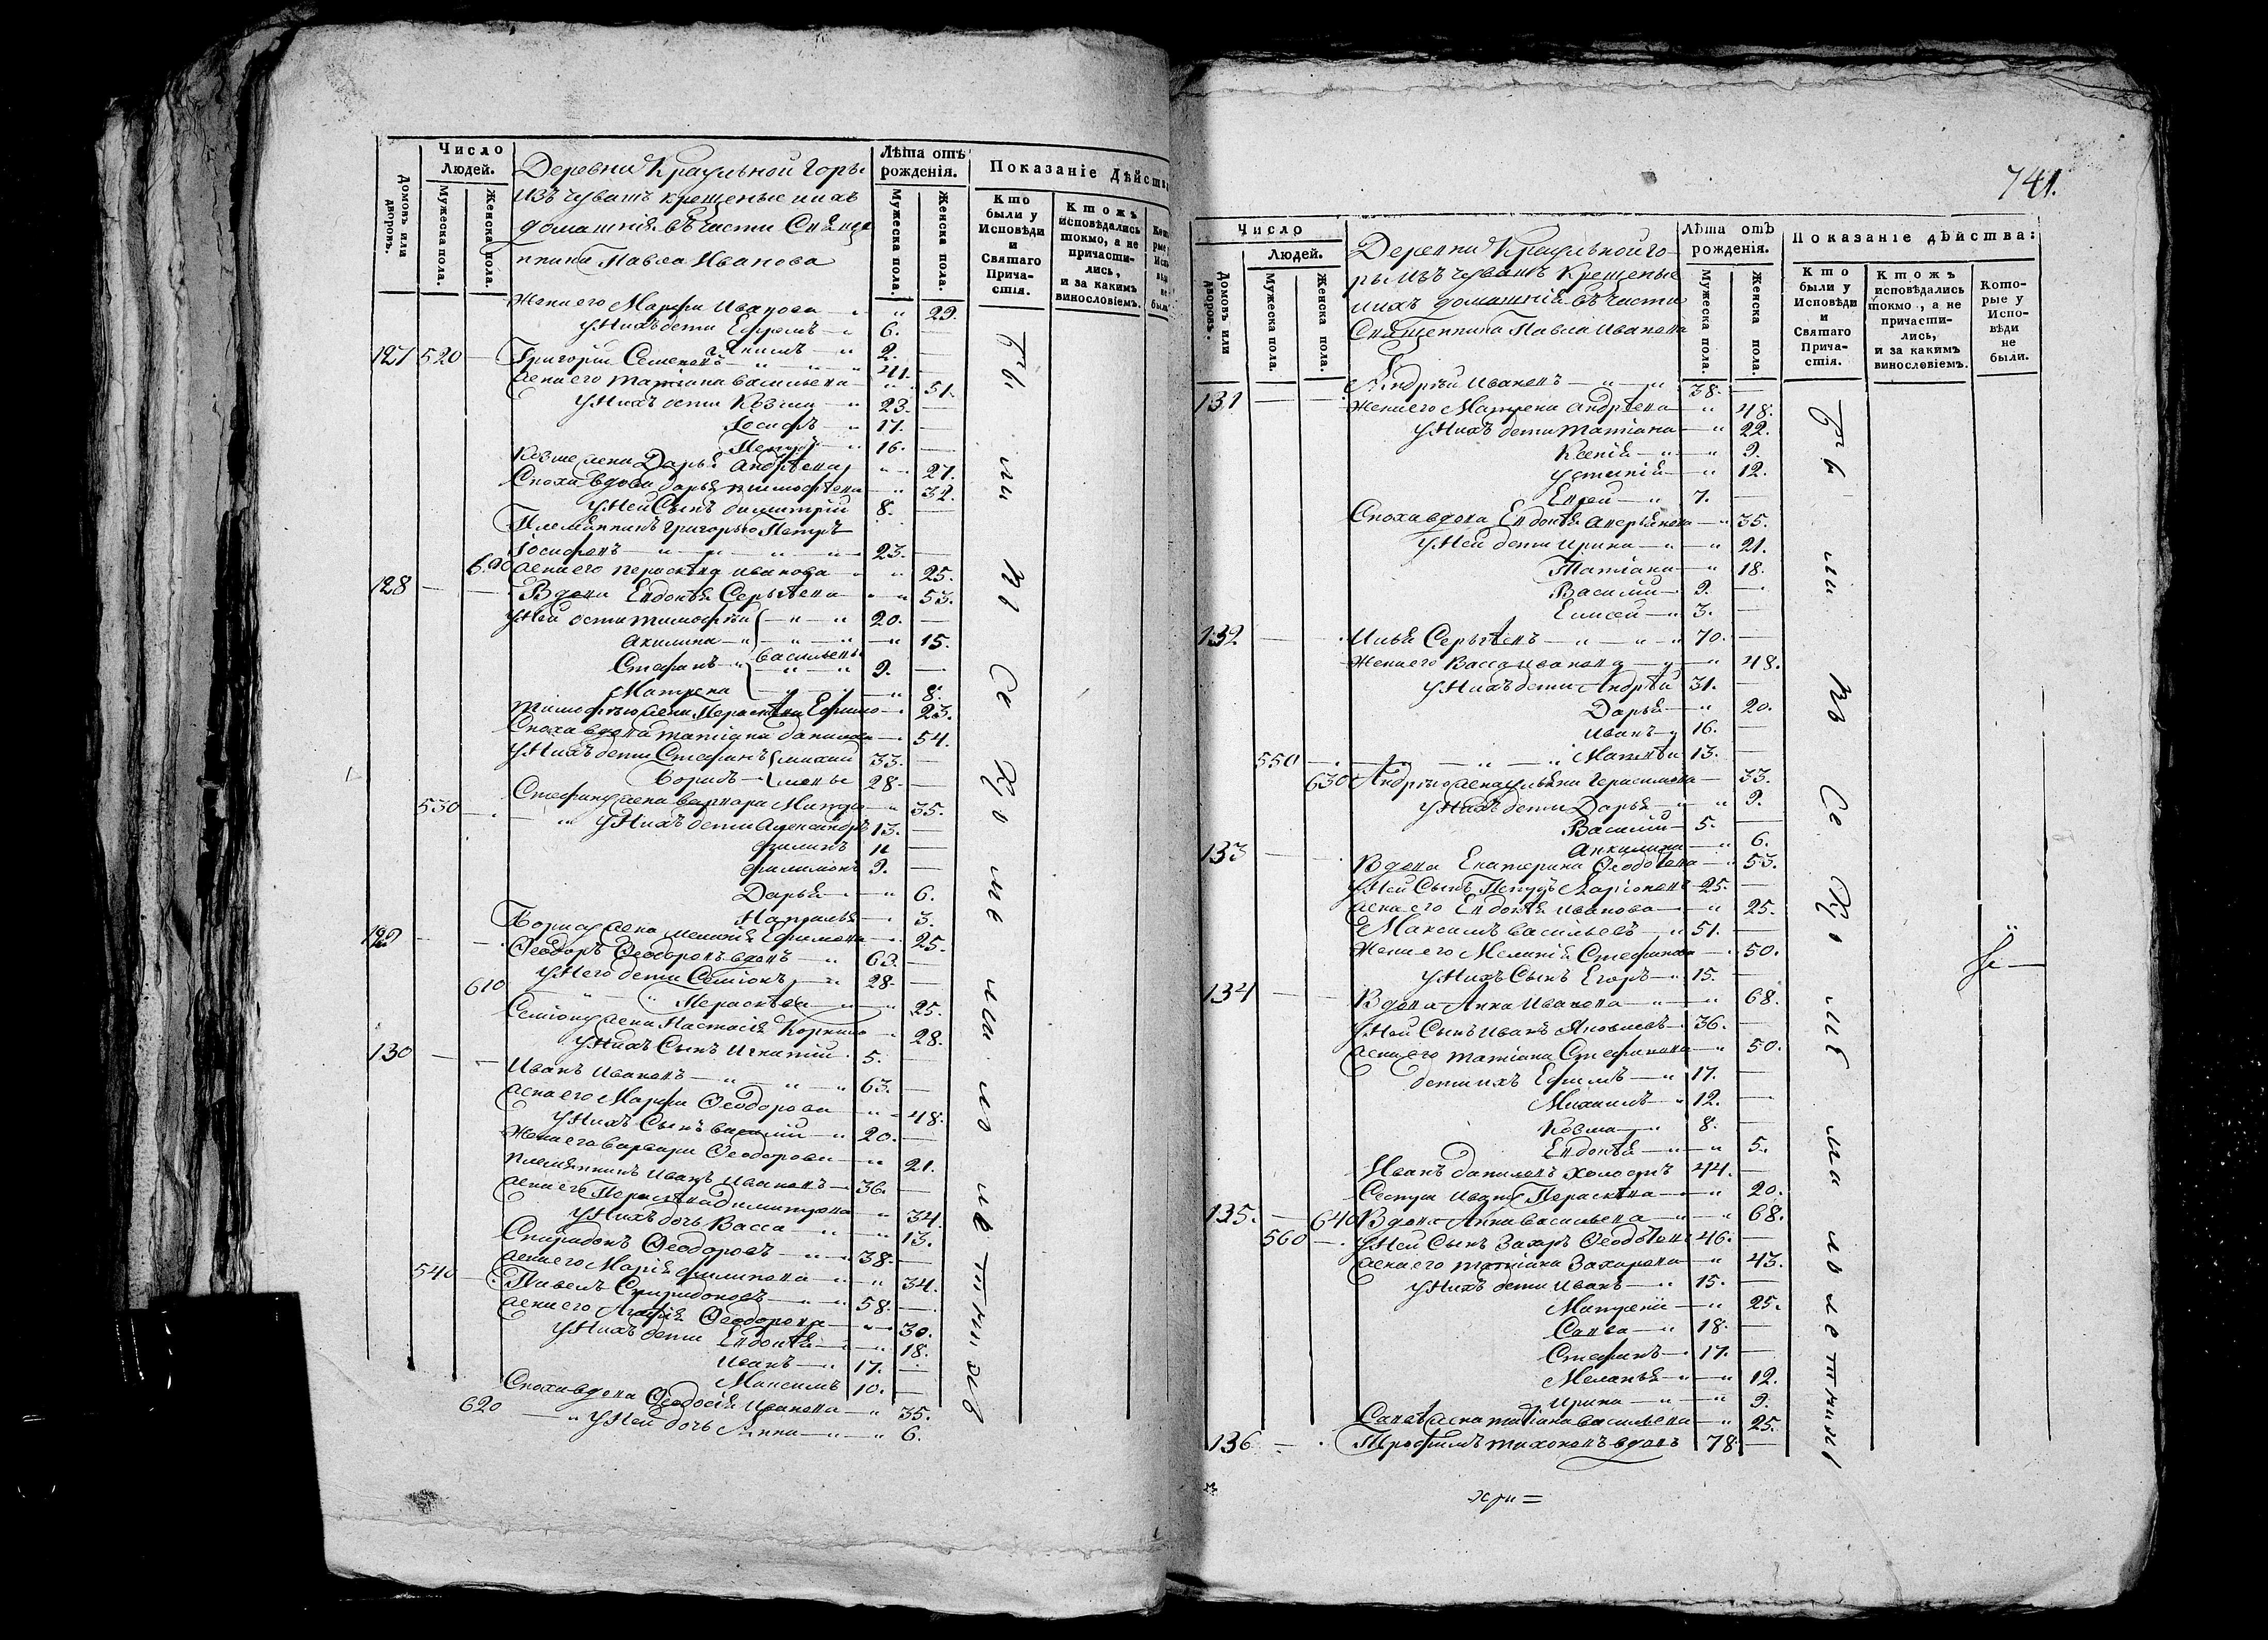 Число
Людей.
Домовъ или дворовъ.
Мужеска пола.
Женска пола.
Деревни Краульной Горы
изъ чувашъ крещеные и ихъ
домашнія въ части Священ
нника Павла Иванова
Лѣта отъ рожденія.
Мужеска пола.
Женска пола.
Показаніе Дѣйств
Кто были у Исповѣди и Святаго Причастія.
Ктожъ исповѣдались токмо, а не причастились, и за какимъ винословіемъ.
Жена его Марфа Иванова 29.
У нихъ дети Ефремъ 6.
2.
127 520 Григорій Семеновъ 41.
жена его татіана васильева 51.
У нихъ дети Козма 23.
Іосифъ 17.
Петръ 16.
Козме жена Дарья Андрѣева 27.
Сноха вдова дарья тимофѣева 32.
У ней Сынъ димитрій 8.
Племянникъ григорью Петръ
Іосифовъ 23.
600 жена его пераскѣва иванова 25.
128 Вдова Евдокѣя Сергѣева 53.
У ней дети тимофѣй 20.
акилина 15.
васильевы
Стефанъ 9.
Матрена 8.
тимофѣю жена Пераскѣва Ефимо 23.
Сноха вдова татіана данилова 54.
У нихъ дети Стефанъ михай 33.
Борисъ ловы 28.
530 Стефану жена варвара 35.
У нихъ дети александръ 13.
филипъ 11
филимонъ 9.
Дарья 6.
Наталья 3.
Борису жена меланія Ефимова 25.
129 Ѳеодоръ Ѳеодоровъ вдовъ 63.
У него дети Семіонъ 28.
610 Пераскѣва 25.
Семіону жена Настасія Корнило 28.
У нихъ Сынъ Игнатій 5.
130 Иванъ Ивановъ 63.
жена его Марфа Ѳеодорова 48.
У нихъ Сынъ василій 20.
Жена его варвара Ѳеодорова 21.
племянникъ Иванъ Ивановъ 36.
жена его Пераскѣва димитрева 34.
У нихъ дочь Васса 13.
Спиридонъ Ѳеодоровъ 38.
жена его Марія филипова 34.
540 Павелъ Спиридоновъ 58.
жена его Агафія Ѳеодорова 30.
У нихъ дети Евдокѣя 18.
Иванъ 17.
Максимъ 10.
Сноха вдова Ѳеодосія Иванова 35.
620 У ней дочь Анна 6.
741.
Число
Людей.
Домовъ или дворовъ.
Мужеска пола.
Женска пола.
Деревни Краульной го
ры изъ чувашъ Крещеные
и ихъ домашнія въ части
Священника Павла Иванова
Лѣта отъ рожденія.
Мужеска пола.
Женска пола.
Показаніе дѣйства:
Кто были у Исповѣди и Святаго Причастія.
Ктожъ исповѣдались токмо, а не причастились, и за какимъ винословіемъ.
Которые у Исповѣди не были.
131 Андрѣй Ивановъ 38.
Жена его Матрена андрѣева 48.
У нихъ дети татіана 22.
Ксенія 9.
устинія 12.
7.
Сноха вдова Евдокѣя 35.
У ней дети Ирина 21.
Татіана 18.
Василій 9.
Елисей 3.
132 Илья Сергѣевъ 70.
Жена его Васса иванова 48.
У нихъ дети Андрѣй 31.
Дарья 20.
Иванъ 16.
550 Матвѣй 13.
630 Андрѣю жена ульяна Герасимова 33.
У нихъ дети Дарья 9.
Василій 5.
Акилина 6.
133 Вдова Екатерина Ѳеодотова 53.
У ней Сынъ Петръ Ларіоновъ 25.
жена его Евдокѣя иванова 25.
Максимъ васильевъ 51.
Жена его Меланія Стефанова 50.
У нихъ Сынъ Егоръ 15.
134 Вдова Анна Иванова 68.
У ней Сынъ Иванъ Яковлевъ 36.
жена его татіана Стефанова 50.
дети ихъ Ефимъ 17.
Михаилъ 12.
Козма 8.
Евдокѣя 5.
Иванъ даниловъ холостъ 44.
Сестра Ивану Пераскѣва 20.
135. 640 Вдова Анна васильева 68.
560 У ней Сынъ Захаръ Ѳеодотовъ 46.
жена его татіана Захарова 43.
У нихъ дети Иванъ 15.
Матрена 25.
Савва 18.
Стефанъ 17.
Меланья 12.
Ирина 9.
Савѣ жена татіана васильева 25.
136 Трофимъ тихоновъ вдовъ 78